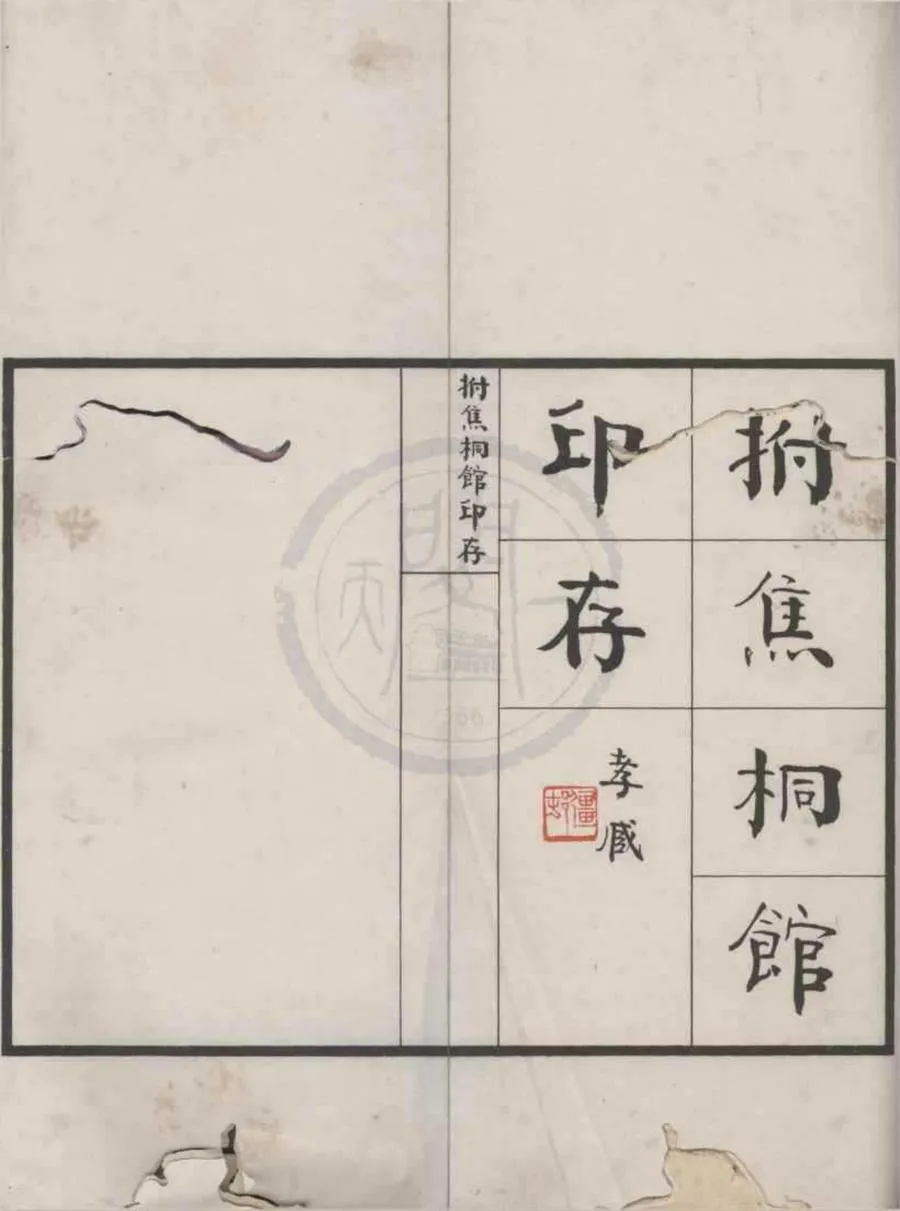 拊焦桐館
印存
孝臧
拊焦桐館印存